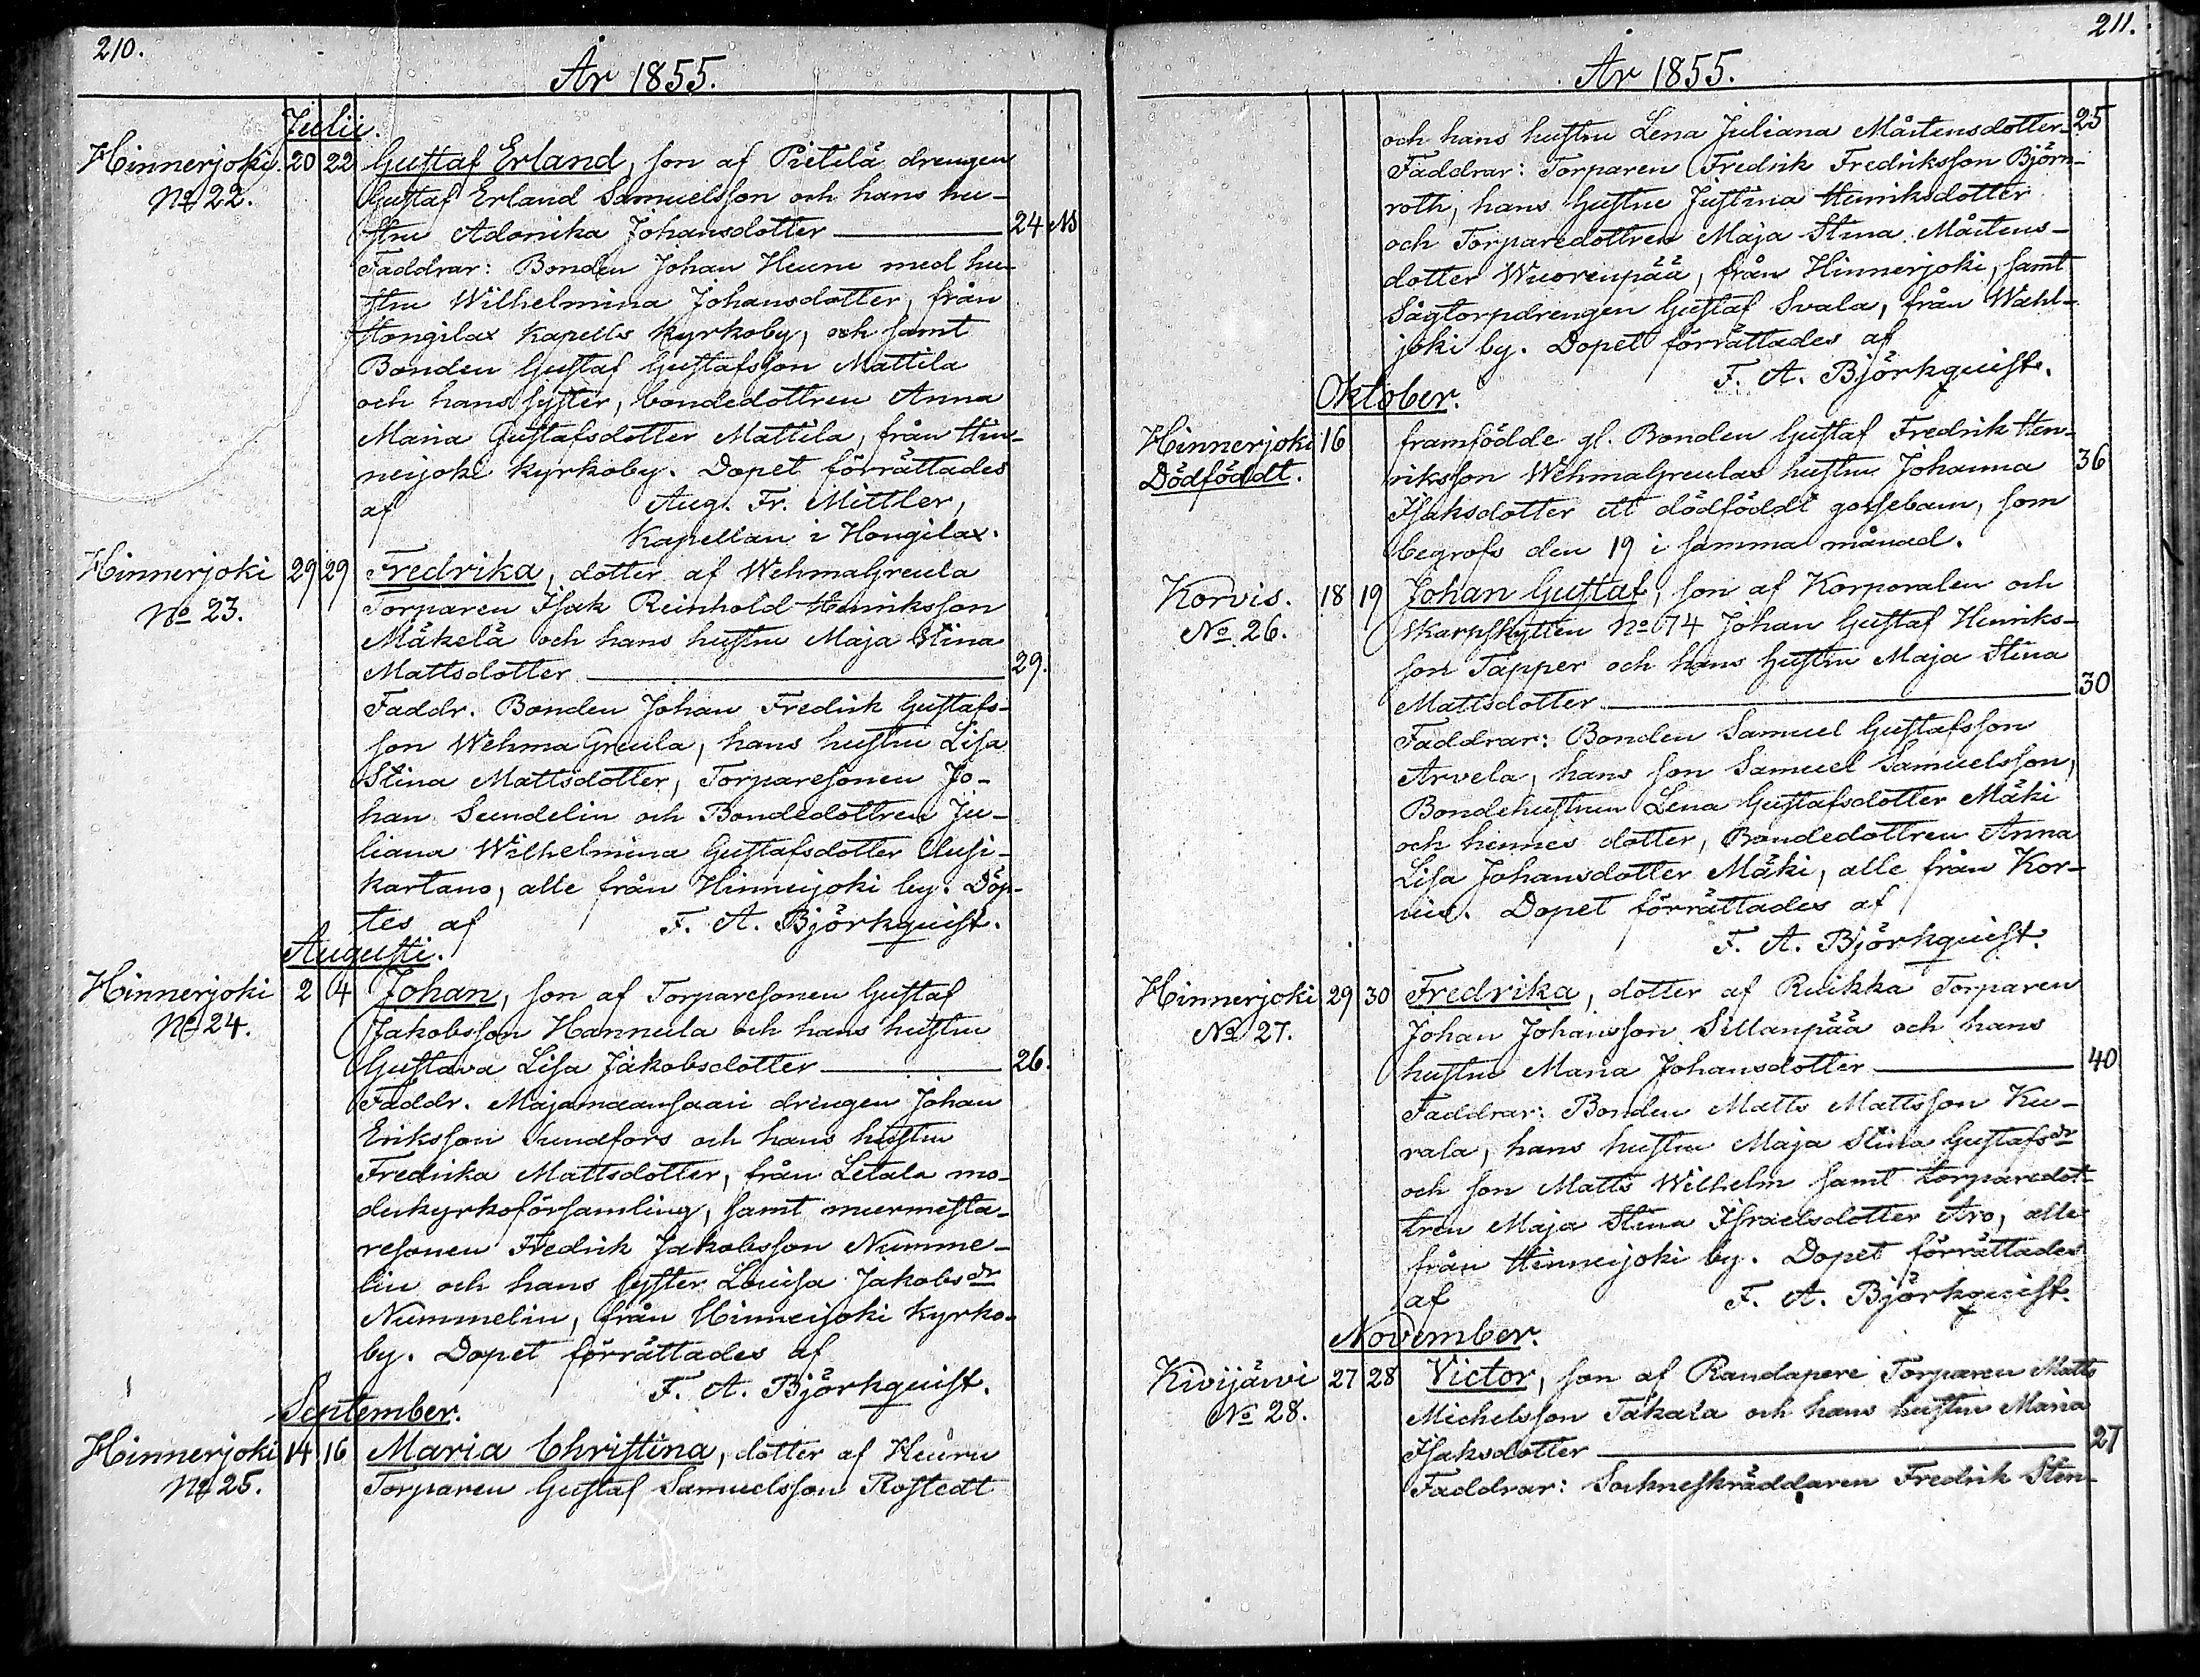 210.
År 1855.
Julii.
Hinnerjoki 20 22 Gustaf Erland, son af Pietilä drengen
No 22. Gustaf Erland Samuelsson och hans hu-
stru Adonika Johansdotter 24
Faddrar: Bonden Johan Heuru med hu-
stru Wilhelmina Johansdotter, från
Hongilax Kapells Kyrkoby, och samt
Bonden Gustaf Gustafsson Mattila
och hans syster, bondedottren Anna
Maria Gustafsdotter Mattila, från Hin-
nerjoki kyrkoby. Dopet förrättades
af Aug. Fr. Mittler,
Kapellan i Hongilax.
Hinnerjoki 29 29 Fredrika, dotter af WehmaGreula
No 23. Torparen Isak Reinhold Henriksson
Mäkelä och hans hustru Maja Stina
Mattsdotter 29.
Faddr. Bonden Johan Fredrik Gustafs-
son WehmaGreula, hans hustru Lisa
Stina Mattsdotter, Torparesonen Jo-
han Sundelin och Bondedottren Ju-
liana Wilhelmina Gustafsdotter Uusi-
kartano, alle från Hinnerjoki by. Döp-
tes af F. A. Björkquist.
Augusti.
Hinnerjoki 2 4 Johan, son af Torparesonen Gustaf
No 24. Jakobsson Hannula och hans hustru
Gustava Lisa Jakobsdotter 26.
Faddr. Majamaansaari drengen Johan
Eriksson Sundfors och hans hustru
Fredrika Mattsdotter, från Letala mo-
derkyrkoförsamling, samt murmesta-
resonen Fredrik Jakobsson Numme-
lin och hans syster Lovisa Jakobsdr
Nummelin, från Hinnerjoki Kyrko-
by. Dopet förrättades af
F. A. Björkquist.
September.
Hinnerjoki 14 16 Maria Christina, dotter af Heuru
No 25. Torparen Gustaf Samuelsson Rostedt
211.
År 1855.
och hans hustru Lena Juliana Mårtensdotter 25
Faddrar: Torparen Fredrik Fredriksson Björn-
roth, hans hustru Justina Henriksdotter
och Torparedottren Maja Stina Mårtens-
dotter Wuorenpää, från Hinnerjoki, samt
Sågtorpdrengen Gustaf Svala, från Wahl-
joki by. Dopet förrättades af
F. A. Björkquist.
Oktober.
Hinnerjoki 16 framfödde gl. Bonden Gustaf Fredrik Hen-
Dödföddt. riksson WehmaGreulas hustru Johanna 36
Isaksdotter ett dödföddt gossebarn, som
begrofs den 19 i samma månad.
Korvis. 18 19 Johan Gustaf, son af Korporalen och
No 26. Skarpskytten No 74 Johan Gustaf Henriks-
son Tapper och hans hustru Maja Stina
Mattsdotter 30
Faddrar: Bonden Samuel Gustafsson
Arvela, hans son Samuel Samuelsson,
Bondehustrun Lena Gustafsdotter Mäki
och hennes dotter, Bondedottren Anna
Lisa Johansdotter Mäki, alle från Kor-
vis. Dopet förrättades af
F. A. Björkquist.
Hinnerjoki 29 30 Fredrika, dotter af Ruikka Torparen
No 27. Johan Johansson Sillanpää och hans
hustru Maria Johansdotter 40
Faddrar: Bonden Matts Mattsson Ku-
rala, hans hustru Maja Stina Gustafsdr
och son Matts Wilhelm samt torparedot-
tren Maja Stina Israelsdotter Aro, alle
från Hinnerjoki by. Dopet förrättades
af F. A. Björkquist.
November.
Kivijärvi 27 28 Victor, son af Randapere Torparen Matts
No 28. Michelsson Takala och hans hustru Maria
Isaksdotter 27
Faddrar: Sockneskräddaren Fredrik Sten-